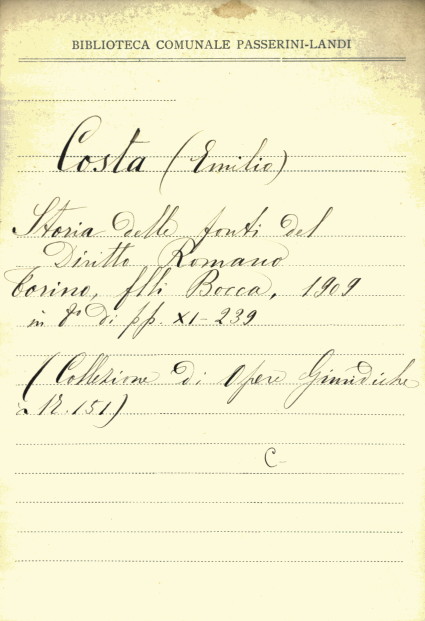 BIBLIOTECA COMUNALE PASSERINI-LANDI
Costa (Emilio)
Storia delle fonti del
Diritto Romano
Torino, flli Bocca, 1909
in 8° di pp. XI-239
(Collezione di Opere Giuridiche
N. 151.)
C-